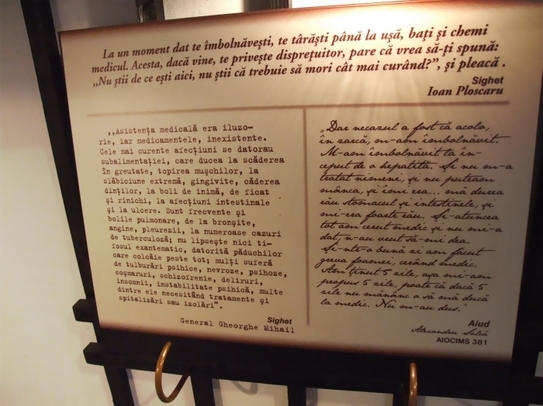 La un moment dat te îmbolnăvești, te târăști până la ușă, bați și chemi
medicul. Acesta, dacă vine, te privește disprețuitor, pare că vrea să-ți spună:
„Nu știi de ce ești aici, nu știi că trebuie să mori cât mai curând?”, și pleacă.
Sighet
Ioan Ploscaru
,,Asistența medicală era iluzo-
rie, iar medicamentele, inexistente.
Cele mai curente afecțiuni se datorau
subalimentației, care ducea la scăderea
în greutate, topirea mușchilor, la
slăbiciune extremă, gingivite, căderea
dinților, la boli de inimă, de ficat
și rinichi, la afecțiuni intestinale
și la ulcere. Sunt frecvente și
bolile pulmonare, de la bronșite,
angine, pleurezii, la numeroase cazuri
de tuberculoză; nu lipsește nici ti-
fosul exantematic, datorită păduchilor
care colcăie peste tot; mulți suferă
de tulburări psihice, nevroze, psihoze,
coșmaruri, schizofrenie, deliruri,
insomnii, instabilitate psihică, multe
dintre ele necesitând tratamente și
spitalizări sau izolări".
Sighet
General Gheorghe Mihail
„Dar necazul a fost că acolo,
în zarcă, m-am îmbolnăvit.
M-am îmbolnăvit la în-
ceput de o hepatită. Și nu m-a
tratat nimeni, și nu puteam
mânca, și îmi era... mă durea
rău stomacul și intestinele, și
mi-era foarte rău. Și-atuncea
tot am cerut medic și nu mi-a
dat, n-au vrut să-mi dea.
Și-ntr-o bună zi am făcut
greva foamei, cerând medic.
Am ținut 5 zile, așa mi-am
propus 5 zile, poate că dacă 5
zile nu mănânc o să mă ducă
la medic. Nu m-au dus."
Aiud
Alexandru
AIOCIMS 381